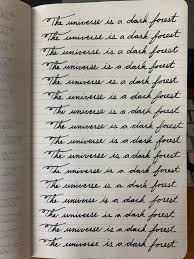 The universe is a dark forest
The universe is a dark forest
The universe is a dark forest
The universe is a dark forest
The universe is a dark forest
The universe is a dark forest
The universe is a dark forest
The universe is a dark forest
The universe is a dark forest
The universe is a dark forest
The universe is a dark forest
The universe is a dark forest
The universe is a dark forest
The universe is a dark forest
The universe is a dark forest
The universe is a dark forest